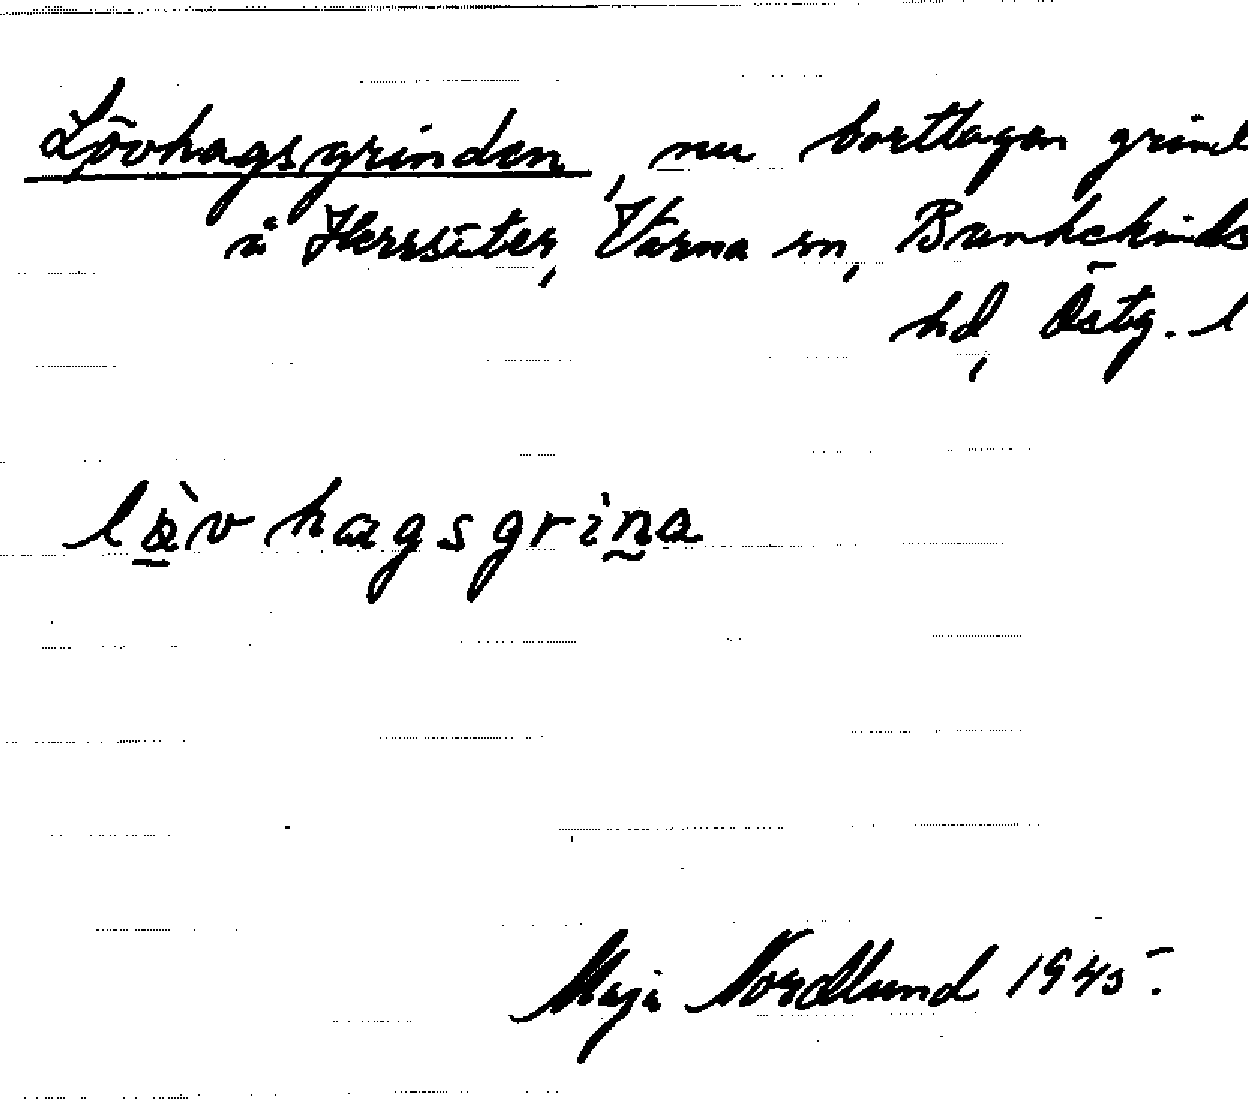 Lövhagsgrinden, nu borttagen grind
å Herrsäter, Värna sn, Bankekinds
hd, Östg. l
lövhagsgrina
Maja Nordlund 1945.